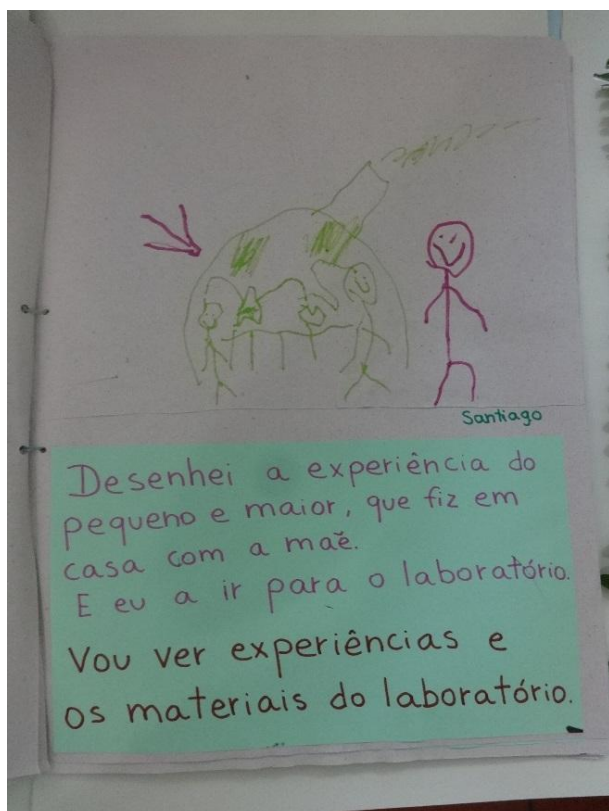 Santiago
Desenhei a experiência do
pequeno e maior, que fiz em
casa com a maẽ.
E eu a ir para o laboratório.
Vou ver experiências e
os materiais do laboratório.